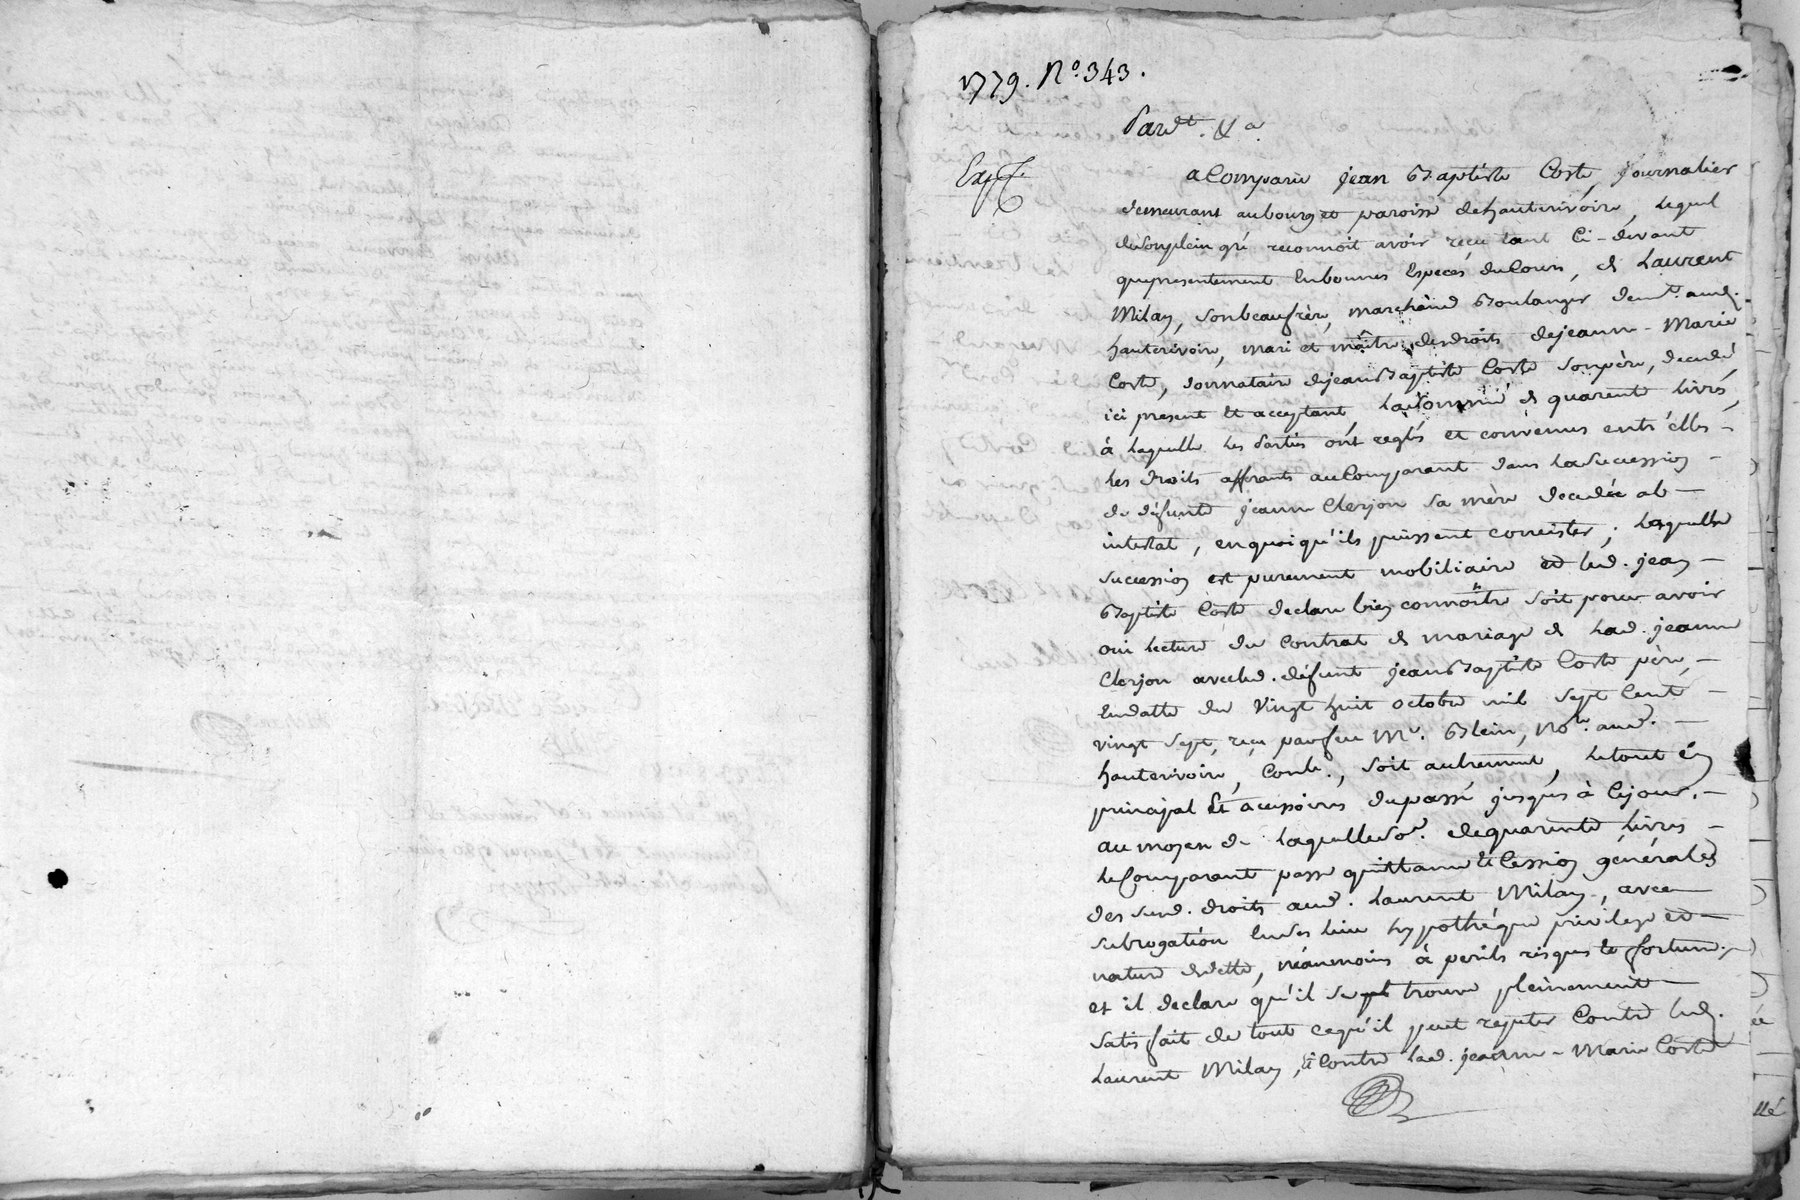 1779. N.° 343.
Pard.t &a
Exp.
a Comparu jean Baptiste Coste, journalier
demeurant au bourg et paroisse de hauterivoire, lequel
de son plein gré reconnoit avoir reçu tant Ci-devant
que presentement En bonnes Especes du Cours, de Laurent
Milan, son beaufrère, marchand Boulanger demt. aud.
hauterivoire, mari et maître des droits de jeanne-Marie
Coste, donnataire de jean Baptiste Coste son père, decedé,
ici present Et acceptant, La somme de quarente livres,
à Laquelle Les Parties ont reglés et convenus entr'elles -
Les droits afferants au Comparant dans La succession -
de défunte jeanne Clerjon sa mère decedée ab -
intestat, en quoi qu'ils puissent concister; Laquelle
succession est purement mobiliaire et led. jean -
Baptiste Coste declare bien connoître soit pour avoir
oui Lecture du Contrat de mariage de Lad. jeanne
Clerjon avec led. défunt jean Baptiste Coste père, -
En datte du Vingt huit octobre mil sept Cent -
vingt sept, reçu par feu Me. Blein, Nore. aud. -
hauterivoire, Contr., soit autrement, Le tout en
principal Et accessoires du passé jusques à Ce jour. -
au moyen de Laquelle so.e de quarente Livres -
Le Comparant passe quittance Et Cession générales
des susd. droits aud. Laurent Milan, avec
subrogation En ses lieu hypothéque privilege et -
nature de dette, néanmoins à perils risques Et fortune,
et il declare qu'il se trouve pleinement -
satisfait de tout ce qu'il peut repeter Contre led.
Laurent Milan, Et Contre Lad. jeanne-Marie Coste